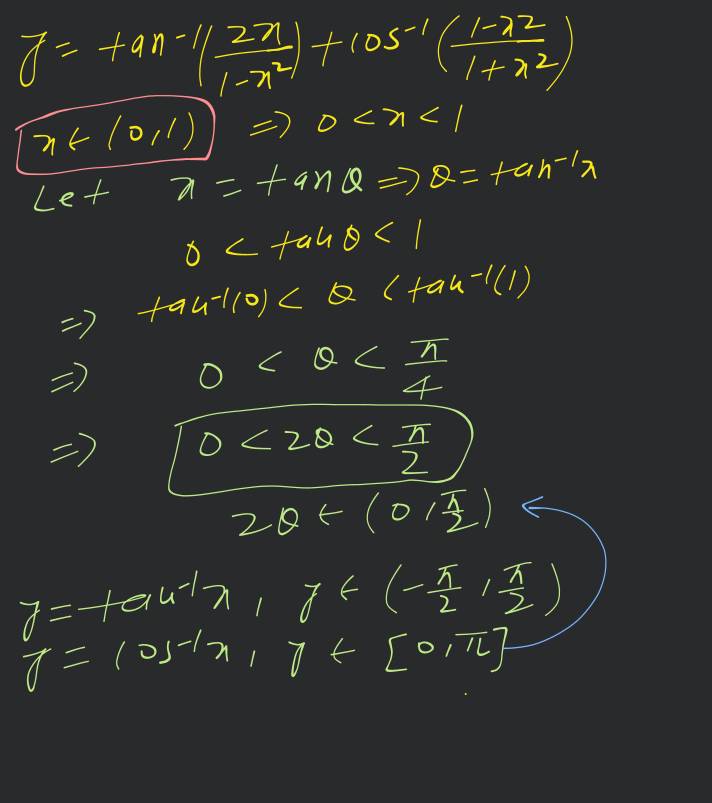 y = tan⁻¹(2x/(1-x²)) + cos⁻¹((1-x²)/(1+x²))
x ∈ (0,1) ⇒ 0 < x < 1
Let x = tanθ ⇒ θ = tan⁻¹x
0 < tanθ < 1
⇒ tan⁻¹(0) < θ < tan⁻¹(1)
⇒ 0 < θ < π/4
⇒ 0 < 2θ < π/2
2θ ∈ (0, π/2)
y = tan⁻¹x, y ∈ (-π/2, π/2)
y = cos⁻¹x, y ∈ [0, π]